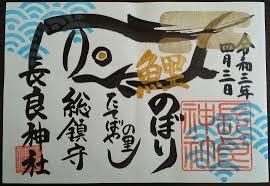 令和三年
四月三日
鯉
のぼり
の里
たてばやし
総鎮守
長良神社
長良神社